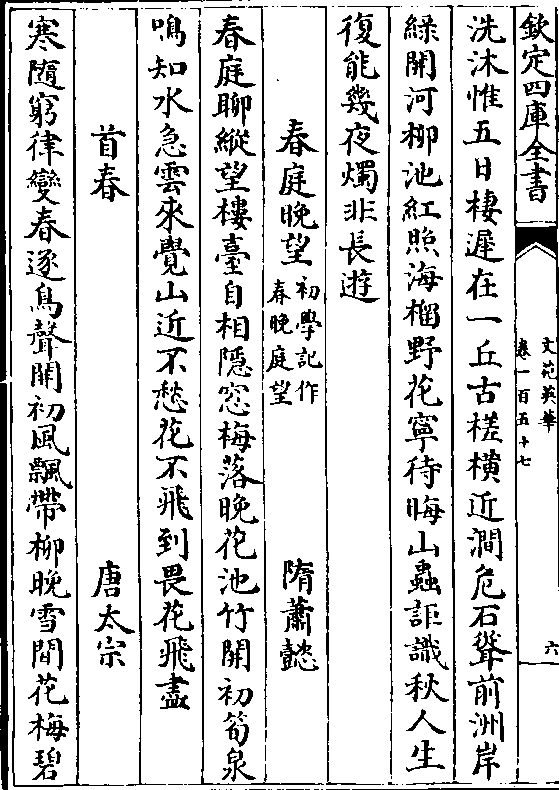 欽定四庫全書
文苑英華
卷一百五十七
六
洗沐惟五日棲遲在一丘古槎横近澗危石聳前洲岸
緑開河柳池紅照海榴野花寧待晦山蟲詎識秋人生
復能幾夜燭非長遊
春庭晚望
初學記作
春晚庭望
隋蕭慤
春庭聊縱望樓臺自相隱窓梅落晚花池竹開初筍泉
鳴知水急雲來覺山近不愁花不飛到畏花飛盡
首春
唐太宗
寒隨窮律變春逐鳥聲開初風飄帶柳晚雪間花梅碧